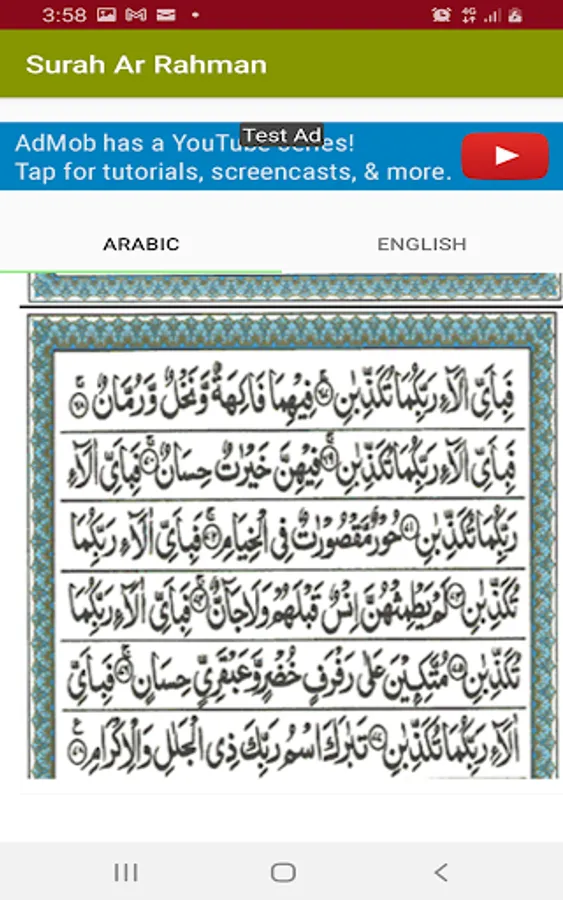 3:58
4G
Surah Ar Rahman
Test Ad
AdMob has a YouTube series!
Tap for tutorials, screencasts, & more.
ARABIC
ENGLISH
فَبِاَىِّ اٰلَآءِ رَبِّكُمَا تُكَذِّبٰنِ ۚ﴿۶۷﴾ فِيْهِمَا فَاكِهَةٌ وَّنَخْلٌ وَّرُمَّانٌ ۚ﴿۶۸﴾
فَبِاَىِّ اٰلَآءِ رَبِّكُمَا تُكَذِّبٰنِ ۚ﴿۶۹﴾ فِيْهِنَّ خَيْرٰتٌ حِسَانٌ ۚ﴿۷۰﴾ فَبِاَىِّ اٰلَآءِ
رَبِّكُمَا تُكَذِّبٰنِ ﴿۷۱﴾ حُوْرٌ مَّقْصُوْرٰتٌ فِى الْخِيَامِ ۚ﴿۷۲﴾ فَبِاَىِّ اٰلَآءِ رَبِّكُمَا
تُكَذِّبٰنِ ﴿۷۳﴾ لَمْ يَطْمِثْهُنَّ اِنْسٌ قَبْلَهُمْ وَلَا جَآنٌّ ۚ﴿۷۴﴾ فَبِاَىِّ اٰلَآءِ رَبِّكُمَا
تُكَذِّبٰنِ ﴿۷۵﴾ مُتَّكِـِٕيْنَ عَلٰى رَفْرَفٍ خُضْرٍ وَّعَبْقَرِىٍّ حِسَانٍ ۚ﴿۷۶﴾ فَبِاَىِّ
اٰلَآءِ رَبِّكُمَا تُكَذِّبٰنِ ﴿۷۷﴾ تَبٰرَكَ اسْمُ رَبِّكَ ذِى الْجَلٰلِ وَالْاِكْرَامِ ﴿۷۸﴾